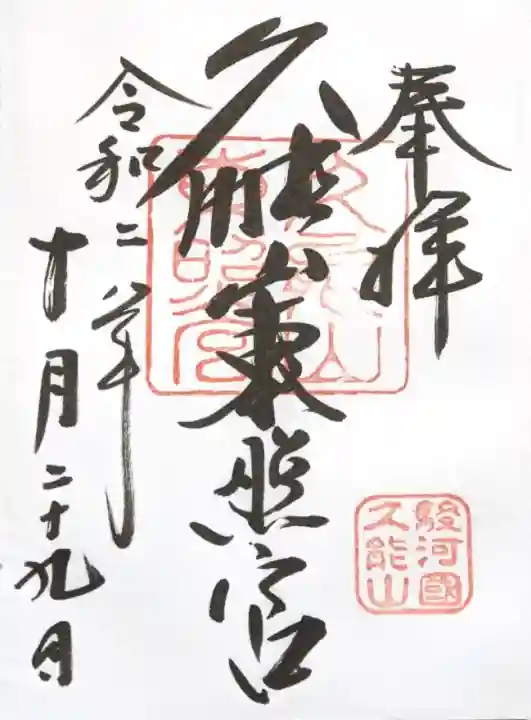 奉拝
久能山東照宮
久能山
東照宮
駿河國
久能山
令和二年
十月二十九日